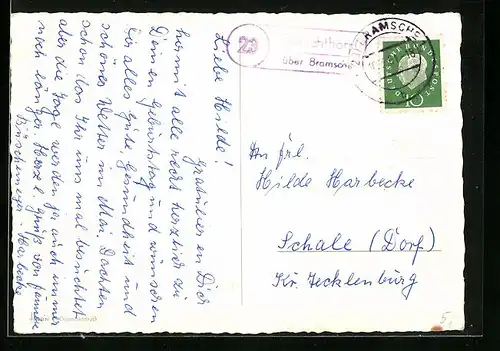 Liebe Hilde!
Gratulieren Dir
hiermit alle recht herzlich zu
Deinem Geburtstag und wünschen
Dir alles Gute, Gesundheit und
schönes Wetter im Mai. Dachten
schon das Ihr uns mal besuchtet
aber die Tage werden ja auch immer
noch länger. Herzl. Grüß von Familie
Harbecke
23
über Bramsche
BRAMSCHE
DEUTSCHE BUNDESPOST
10
An Frl.
Hilde Harbecke
Schale (Dorf)
Kr. Tecklenburg
5,